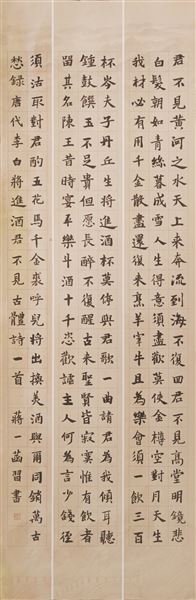 君不見黃河之水天上來奔流到海不復回君不見高堂明鏡悲
白髮朝如青絲暮成雪人生得意須盡歡莫使金樽空對月天生
我材必有用千金散盡還復來烹羊宰牛且為樂會須一飲三百
杯岑夫子丹丘生將進酒杯莫停與君歌一曲請君為我傾耳聽
鍾鼓饌玉不足貴但願長醉不復醒古來聖賢皆寂寞惟有飲者
留其名陳王昔時宴平樂斗酒十千恣歡謔主人何為言少錢徑
須沽取對君酌五花馬千金裘呼兒將出換美酒與爾同銷萬古
愁錄唐代李白將進酒君不見古體詩一首 蔣一菡習書